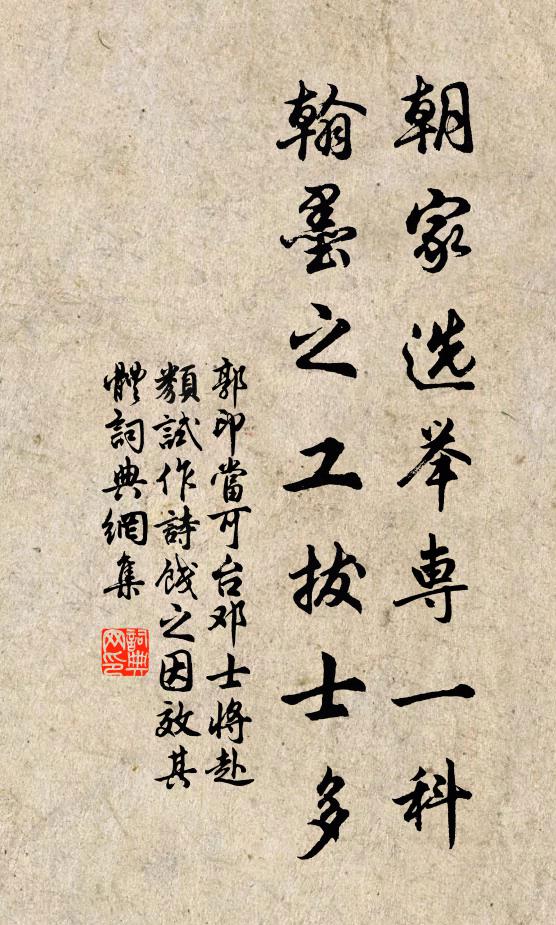 朝家选举専一科
翰墨之工拔士多
郭印當可台邓士將赴
類試作詩餞之因效其
體詞典網集
詞典网印